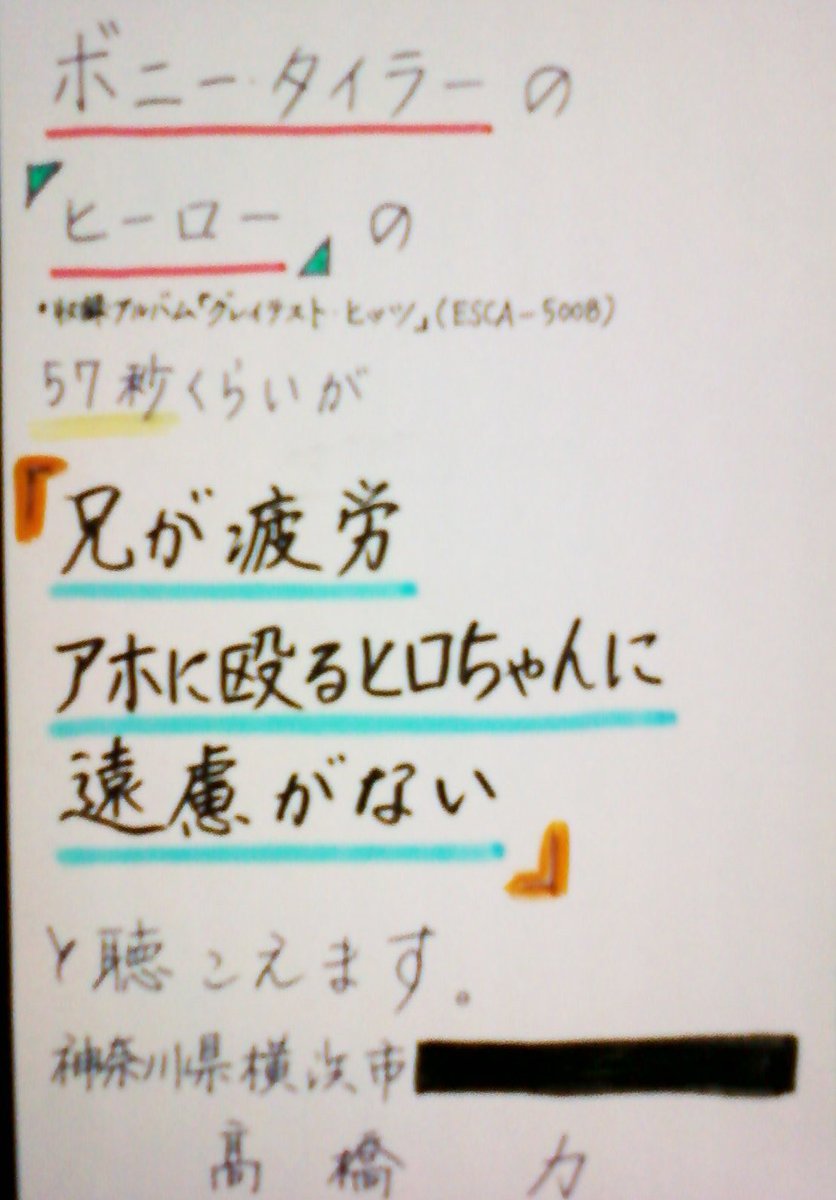 ボニー・タイラーの
「ヒーロー」の
・収録アルバム「グレイテスト・ヒッツ」(ESCA-5008)
57秒くらいが
『兄が疲労
アホに殴るヒロちゃんに
遠慮がない』
と聴こえます。
神奈川県横浜市
高橋 力